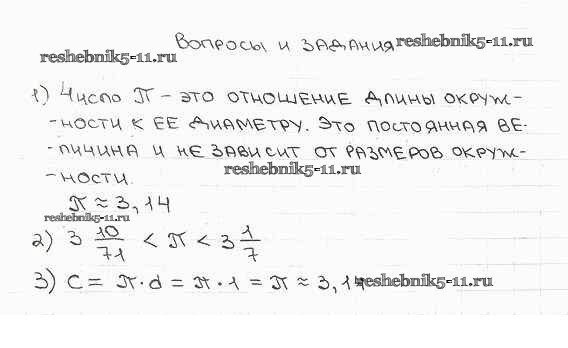 Вопросы и задания reshebnik5-11.ru
reshebnik5-11.ru
1) Число π – это отношение длины окруж-
-ности к её диаметру. Это постоянная ве-
-личина и не зависит от размеров окруж-
reshebnik5-11.ru
-ности.
π ≈ 3,14
reshebnik5-11.ru
2) 3 10/71 < π < 3 1/7
3) C = π·d = π·1 = π ≈ 3,14 reshebnik5-11.ru